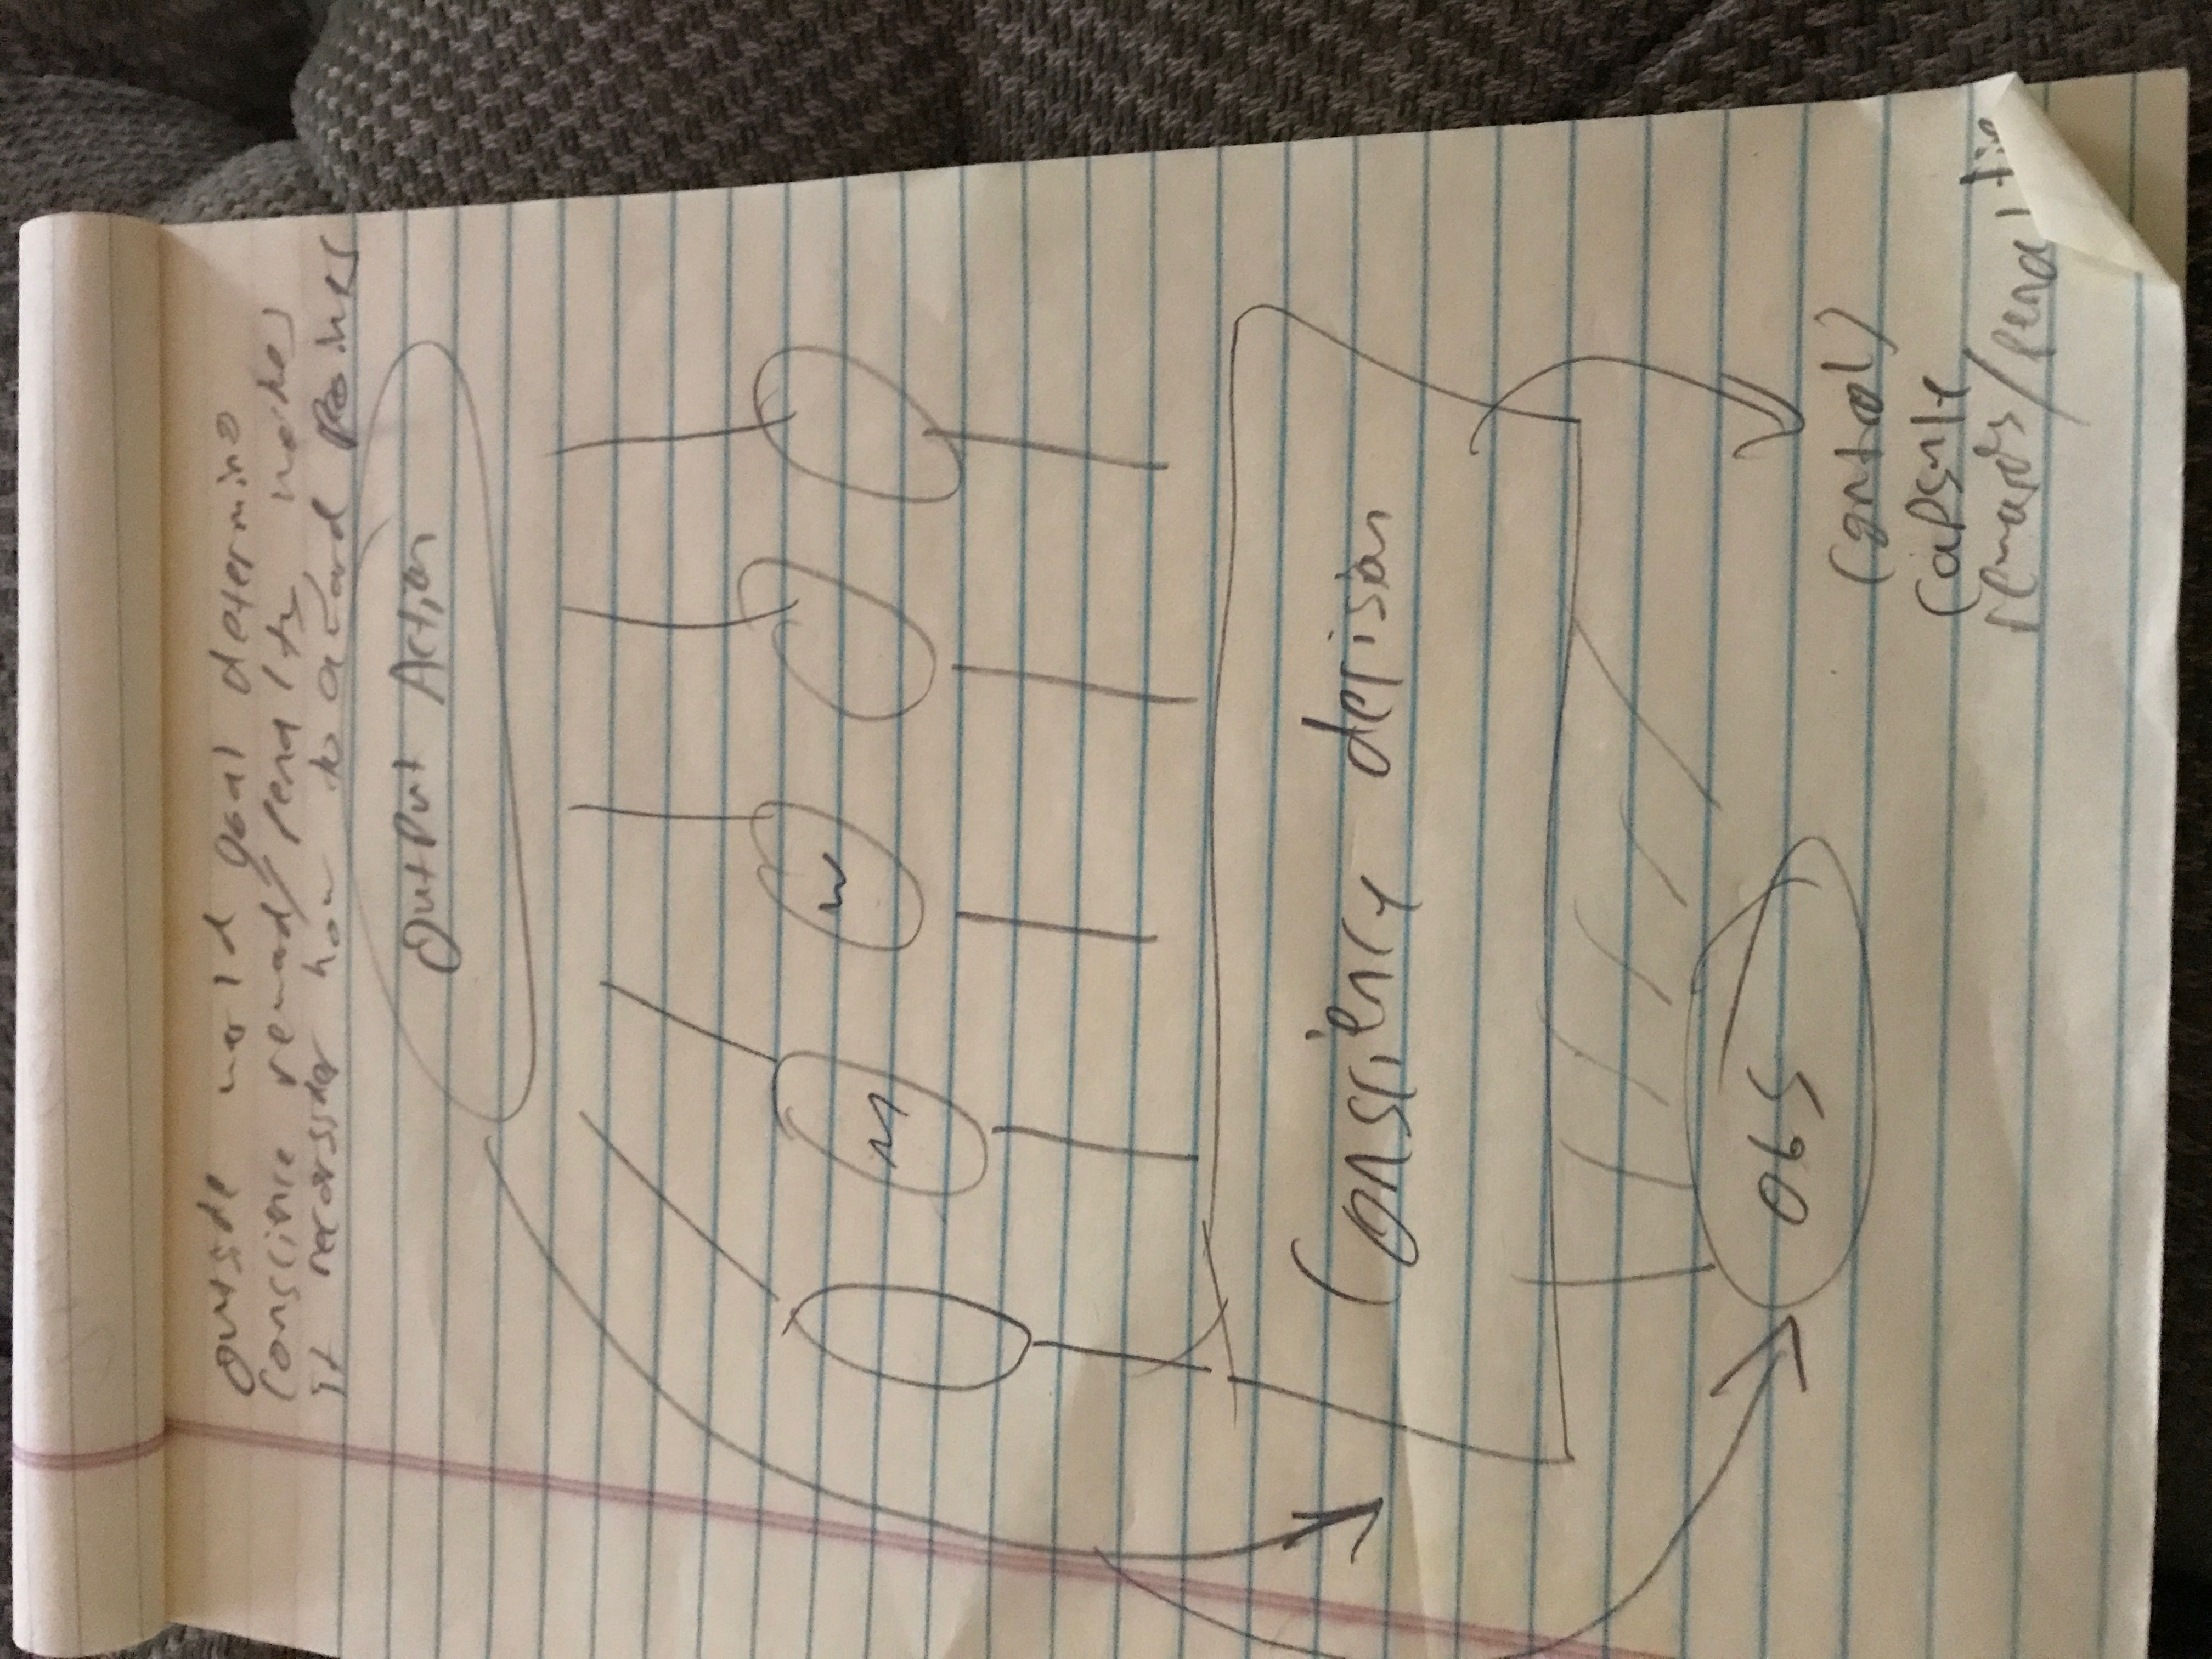 outside world goal determins
Conscience reward/penalty, makes
it reconsider how to award points
Output Action
M
W
Consciency decision
Obs
(control)
capsule
rewards/penaltie